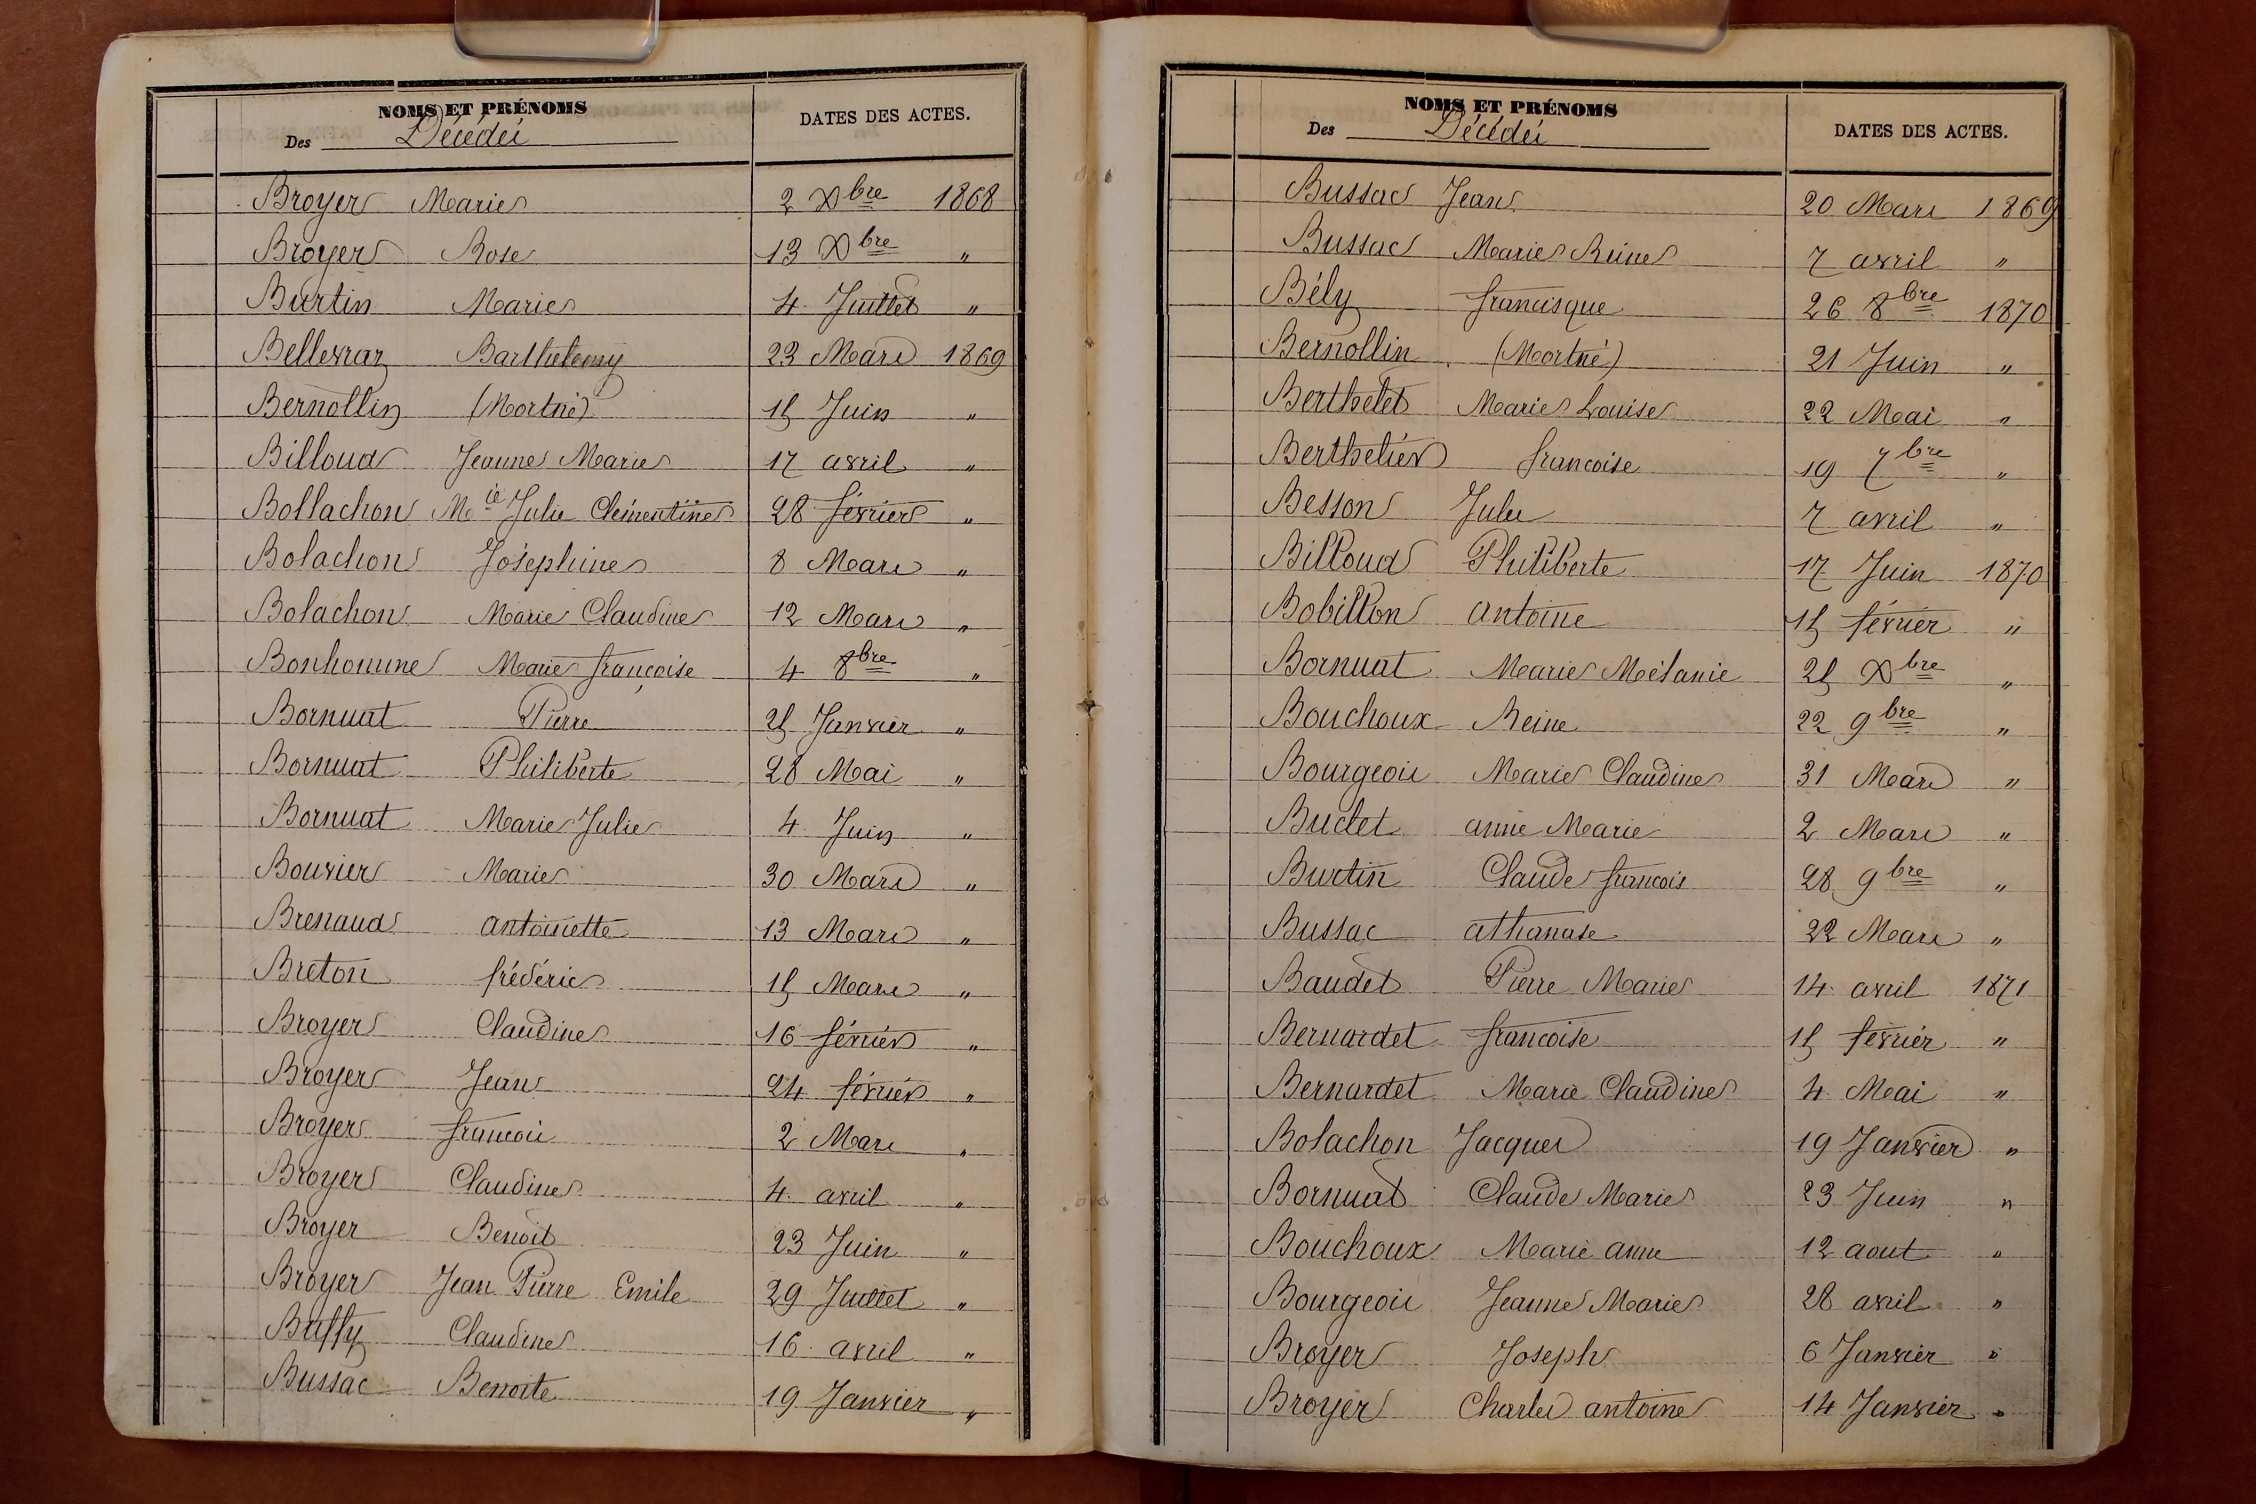 NOMS ET PRÉNOMS
Des Décédés
DATES DES ACTES.
Broyer Marie 2 Xbre 1868
Broyer Rose 13 Xbre "
Burtin Marie 4 Juillet "
Bellevrar Barthelemy 23 Mars 1869
Bernollin (Mortné) 15 Juin "
Billoud Jeanne Marie 17 avril "
Bollachon Mie Julie Clémentine 28 février "
Bolachon Joséphine 8 Mars "
Bolachon Marie Claudine 12 Mars "
Bonhomme Marie françoise 4 8bre "
Bornuat Pierre 25 Janvier "
Bornuat Philiberte 28 Mai "
Bornuat Marie Julie 4 Juin "
Bouvier Marie 30 Mars "
Brenaud antoinette 13 Mars "
Breton frédéric 15 Mars "
Broyer Claudine 16 février "
Broyer Jean 24 février "
Broyer francois 2 Mars "
Broyer Claudine 4 avril "
Broyer Benoit 23 Juin "
Broyer Jean Pierre Emile 29 Juillet "
Buffy Claudine 16 avril "
Bussac Benoite 19 Janvier "
NOMS ET PRÉNOMS
Des Décédés
DATES DES ACTES.
Bussac Jean 20 Mars 1869
Bussac Marie Reine 7 avril "
Bély francisque 26 8bre 1870
Bernollin (Mortné) 21 Juin "
Berthelet Marie Louise 22 Mai "
Berthelier francoise 19 7bre "
Besson Jules 7 avril "
Billoud Philiberte 17 Juin 1870
Bobillon antoine 15 février "
Bornuat Marie Mélanie 25 Xbre "
Bouchoux Reine 22 9bre "
Bourgeois Marie Claudine 31 Mars "
Buclet anne Marie 2 Mars "
Burtin Claude francois 28 9bre "
Bussac athanase 22 Mars "
Baudet Pierre Marie 14 avril 1871
Bernardet francoise 15 février "
Bernardet Marie Claudine 4 Mai "
Bolachon Jacques 19 Janvier "
Bornuat Claude Marie 23 Juin "
Bouchoux Marie anne 12 aout "
Bourgeois Jeanne Marie 28 avril "
Broyer Joseph 6 Janvier "
Broyer Charles antoine 14 Janvier "